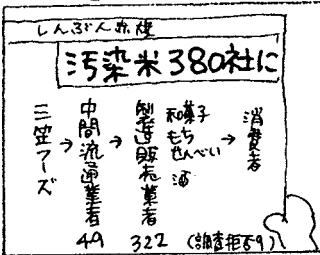 しんぶん赤旗
汚染米380社に
三笠フーズ
→
中間流通業者
49
→
製造販売業者
322
和菓子
もち
せんべい
酒
→
消費者
(調査拒否9)